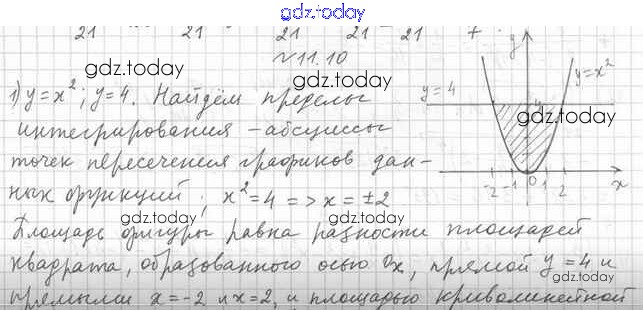 gdz.today
21 21 21 21 7
№11.10
gdz.today
gdz.today
1) y = x²; y = 4. Найдём пределы
интегрирования – абсциссы
точек пересечения графиков дан-
ных функций; x² = 4 => x = ±2
gdz.today
gdz.today
Площадь фигуры равна разности площадей
квадрата, образованного осью Ox, прямой y = 4 и
gdz.today
прямыми x = -2 и x = 2, и площадью криволинейной
y
y = x²
y = 4
gdz.today
-2 -1 0 1 2 x